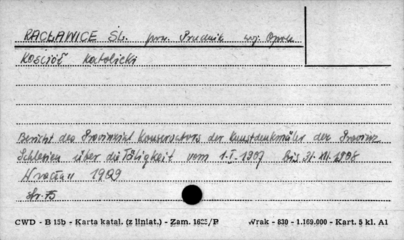 RACŁAWICE ŚL. pow. Prudnik woj. Opole
Kościół Katolicki
Bericht des Provinzial Konservators der Kunstdenkmäler der Provinz
Schlesien über die Tätigkeit vom 1.I.1907 bis 31.XII.1908
Wrocław 1909
str. 75
CWD - B 15b - Karta katal. (z liniat.) - Zam. /P Wrak - 830 - 1.169.000 - Kart. 5 kl. A1